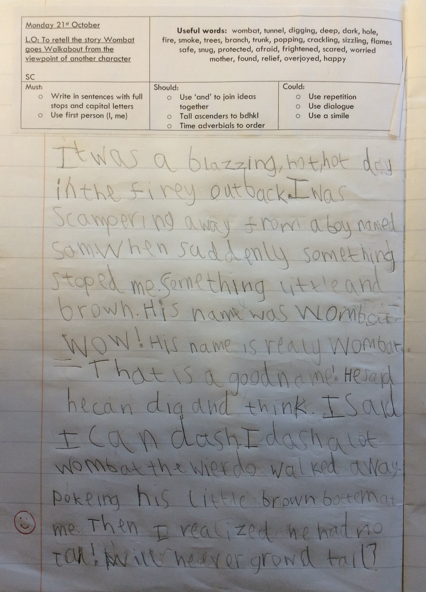 Monday 21st October
L.O: To retell the story Wombat
goes Walkabout from the
viewpoint of another character
SC
Useful words: wombat, tunnel, digging, deep, dark, hole,
fire, smoke, trees, branch, trunk, popping, crackling, sizzling, flames
safe, snug, protected, afraid, frightened, scared, worried
mother, found, relief, overjoyed, happy
Must:
o Write in sentences with full
stops and capital letters
o Use first person (I, me)
Should:
o Use 'and' to join ideas
together
o Tall ascenders to bdhkl
o Time adverbials to order
Could:
o Use repetition
o Use dialogue
o Use a simile
It was a blazzing, hot, hot day
in the firey outback. I was
scampering away from a boy named
Sam When suddenly something
stoped me. Something little and
brown. His name was Wombat
WOW! His name is realy Wombat.
- That is a good name! He said
he can dig and think. I said
I can dash I dash a lot
Wombat the wierdo walked away
pokeing his little brown bottem at
me. Then I realized he had no
tail! Will he ever grow tail?